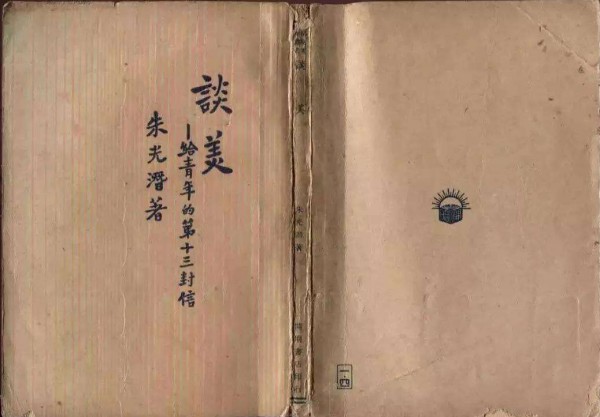 談美
—給青年的第十三封信
朱光潛著
談美
朱光潛著
一·四